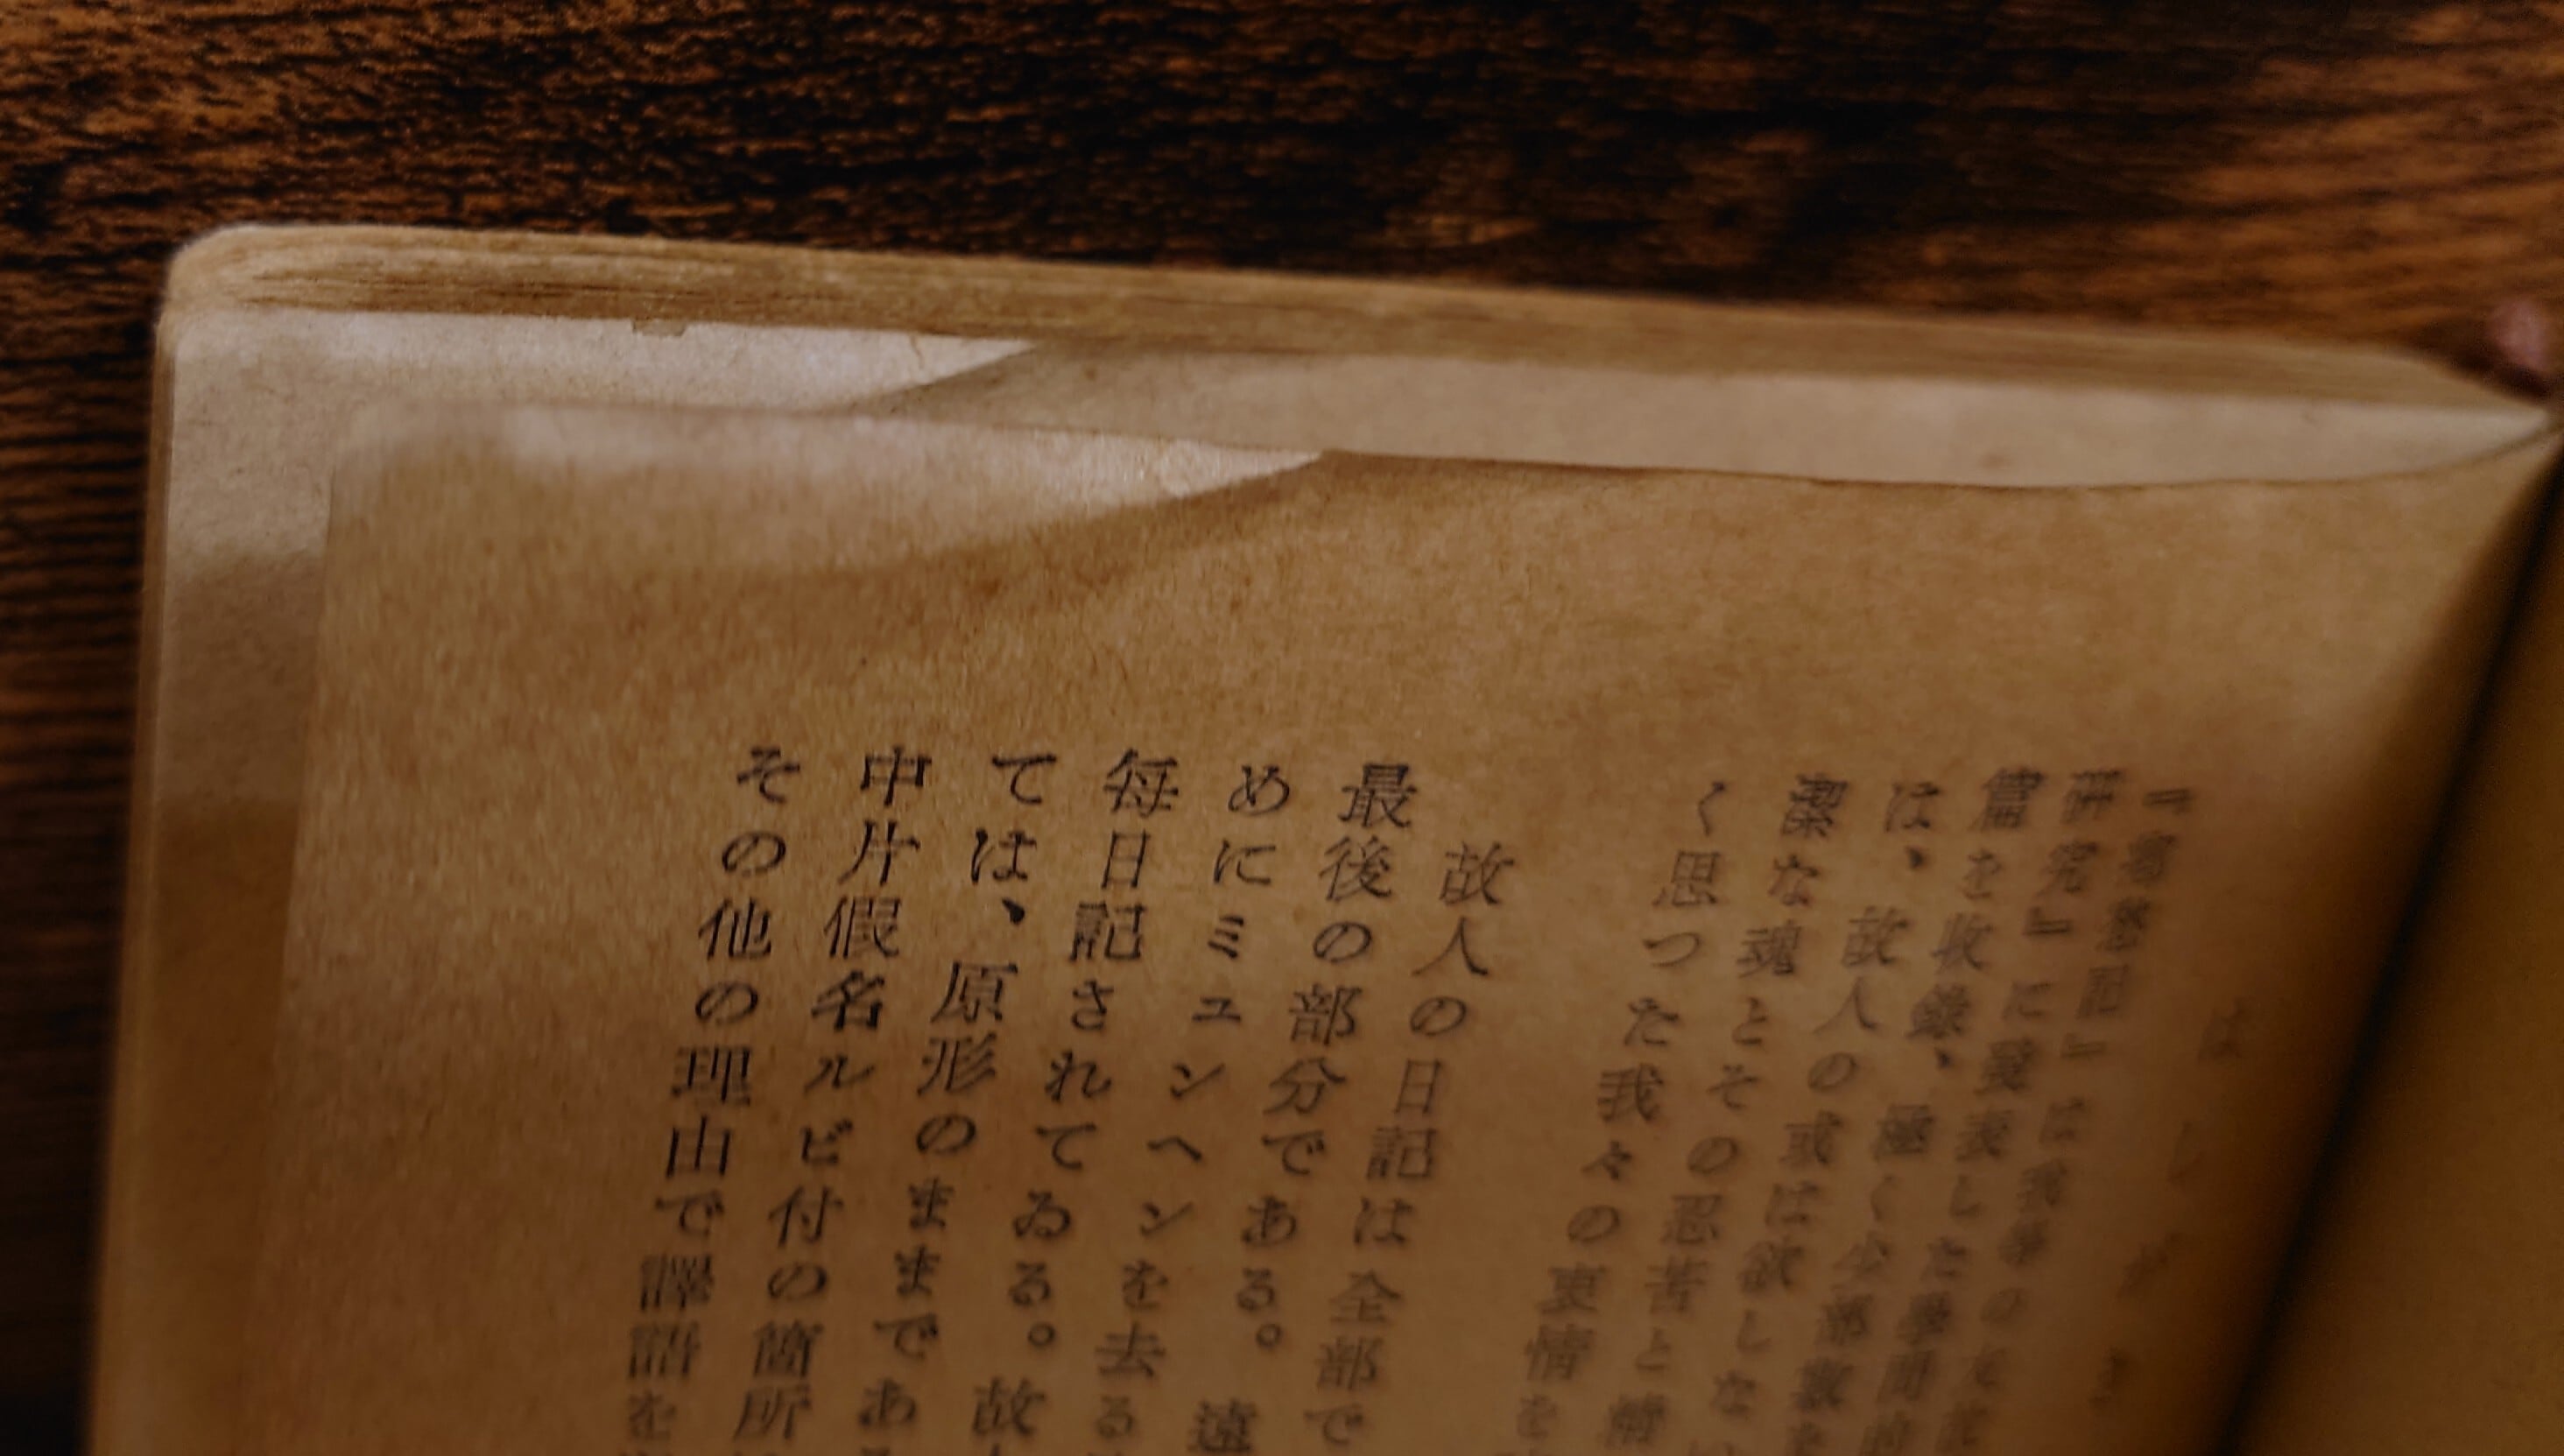 は し が き
『寄
研究』に發表した學問的
篇を收錄、極く少部數を
は、故人の或は欲しな
潔な魂とその忍苦と精
く思つた我々の衷情を
故人の日記は全部で
最後の部分である。遠
めにミュンヘンを去る
毎日記されてゐる。故
ては、原形のままである
中片假名ルビ付の箇所
その他の理由で譯語を